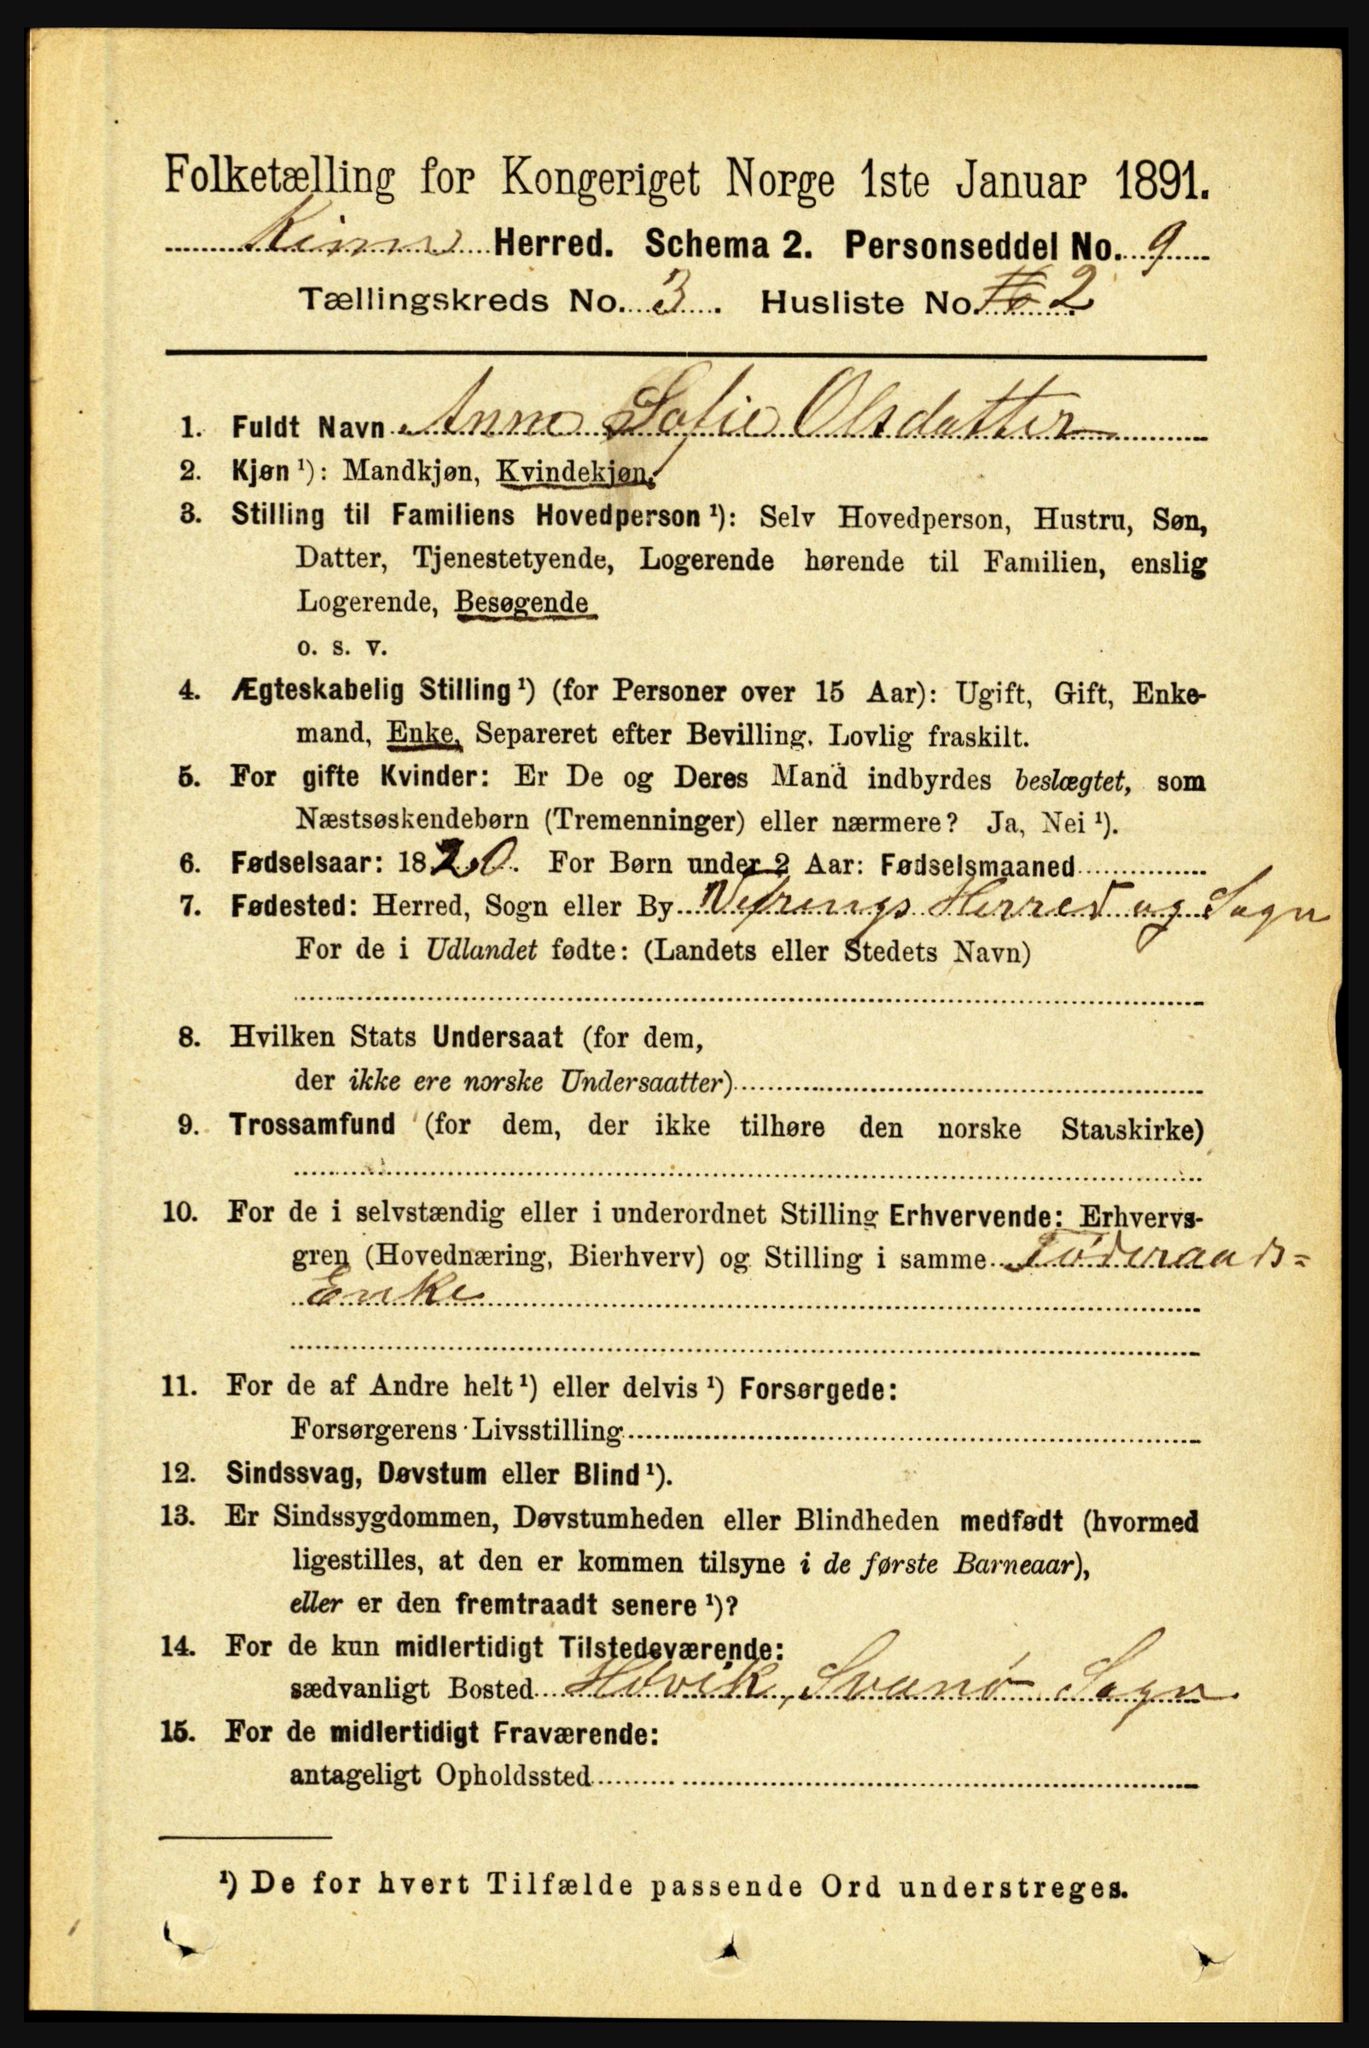 Folketælling for Kongeriget Norge 1ste Januar 1891.
Kinn Herred. Schema 2. Personseddel No. 9
Tællingskreds No. 3. Husliste No. 2
1. Fuldt Navn Anne Sofie Olsdatter
2. Kjøn ¹): Mandkjøn, Kvindekjøn.
3. Stilling til Familiens Hovedperson ¹): Selv Hovedperson, Hustru, Søn,
Datter, Tjenestetyende, Logerende hørende til Familien, enslig
Logerende, Besøgende
o. s. v.
4. Ægteskabelig Stilling ¹) (for Personer over 15 Aar): Ugift, Gift, Enke-
mand, Enke, Separeret efter Bevilling. Lovlig fraskilt.
5. For gifte Kvinder: Er De og Deres Mand indbyrdes beslægtet, som
Næstsøskendebørn (Tremenninger) eller nærmere? Ja, Nei ¹).
6. Fødselsaar: 1820. For Børn under 2 Aar: Fødselsmaaned
7. Fødested: Herred, Sogn eller By Vefrings Herred og Sogn
For de i Udlandet fødte: (Landets eller Stedets Navn)
8. Hvilken Stats Undersaat (for dem,
der ikke ere norske Undersaatter)
9. Trossamfund (for dem, der ikke tilhøre den norske Statskirke)
10. For de i selvstændig eller i underordnet Stilling Erhvervende: Erhvervs-
gren (Hovednæring, Bierhverv) og Stilling i samme Føderaads=
Enke
11. For de af Andre helt ¹) eller delvis ¹) Forsørgede:
Forsørgerens Livsstilling
12. Sindssvag, Døvstum eller Blind ¹).
13. Er Sindssygdommen, Døvstumheden eller Blindheden medfødt (hvormed
ligestilles, at den er kommen tilsyne i de første Barneaar),
eller er den fremtraadt senere ¹)?
14. For de kun midlertidigt Tilstedeværende:
sædvanligt Bosted Høvik, Svanø Sogn
15. For de midlertidigt Fraværende:
antageligt Opholdssted
¹) De for hvert Tilfælde passende Ord understreges.